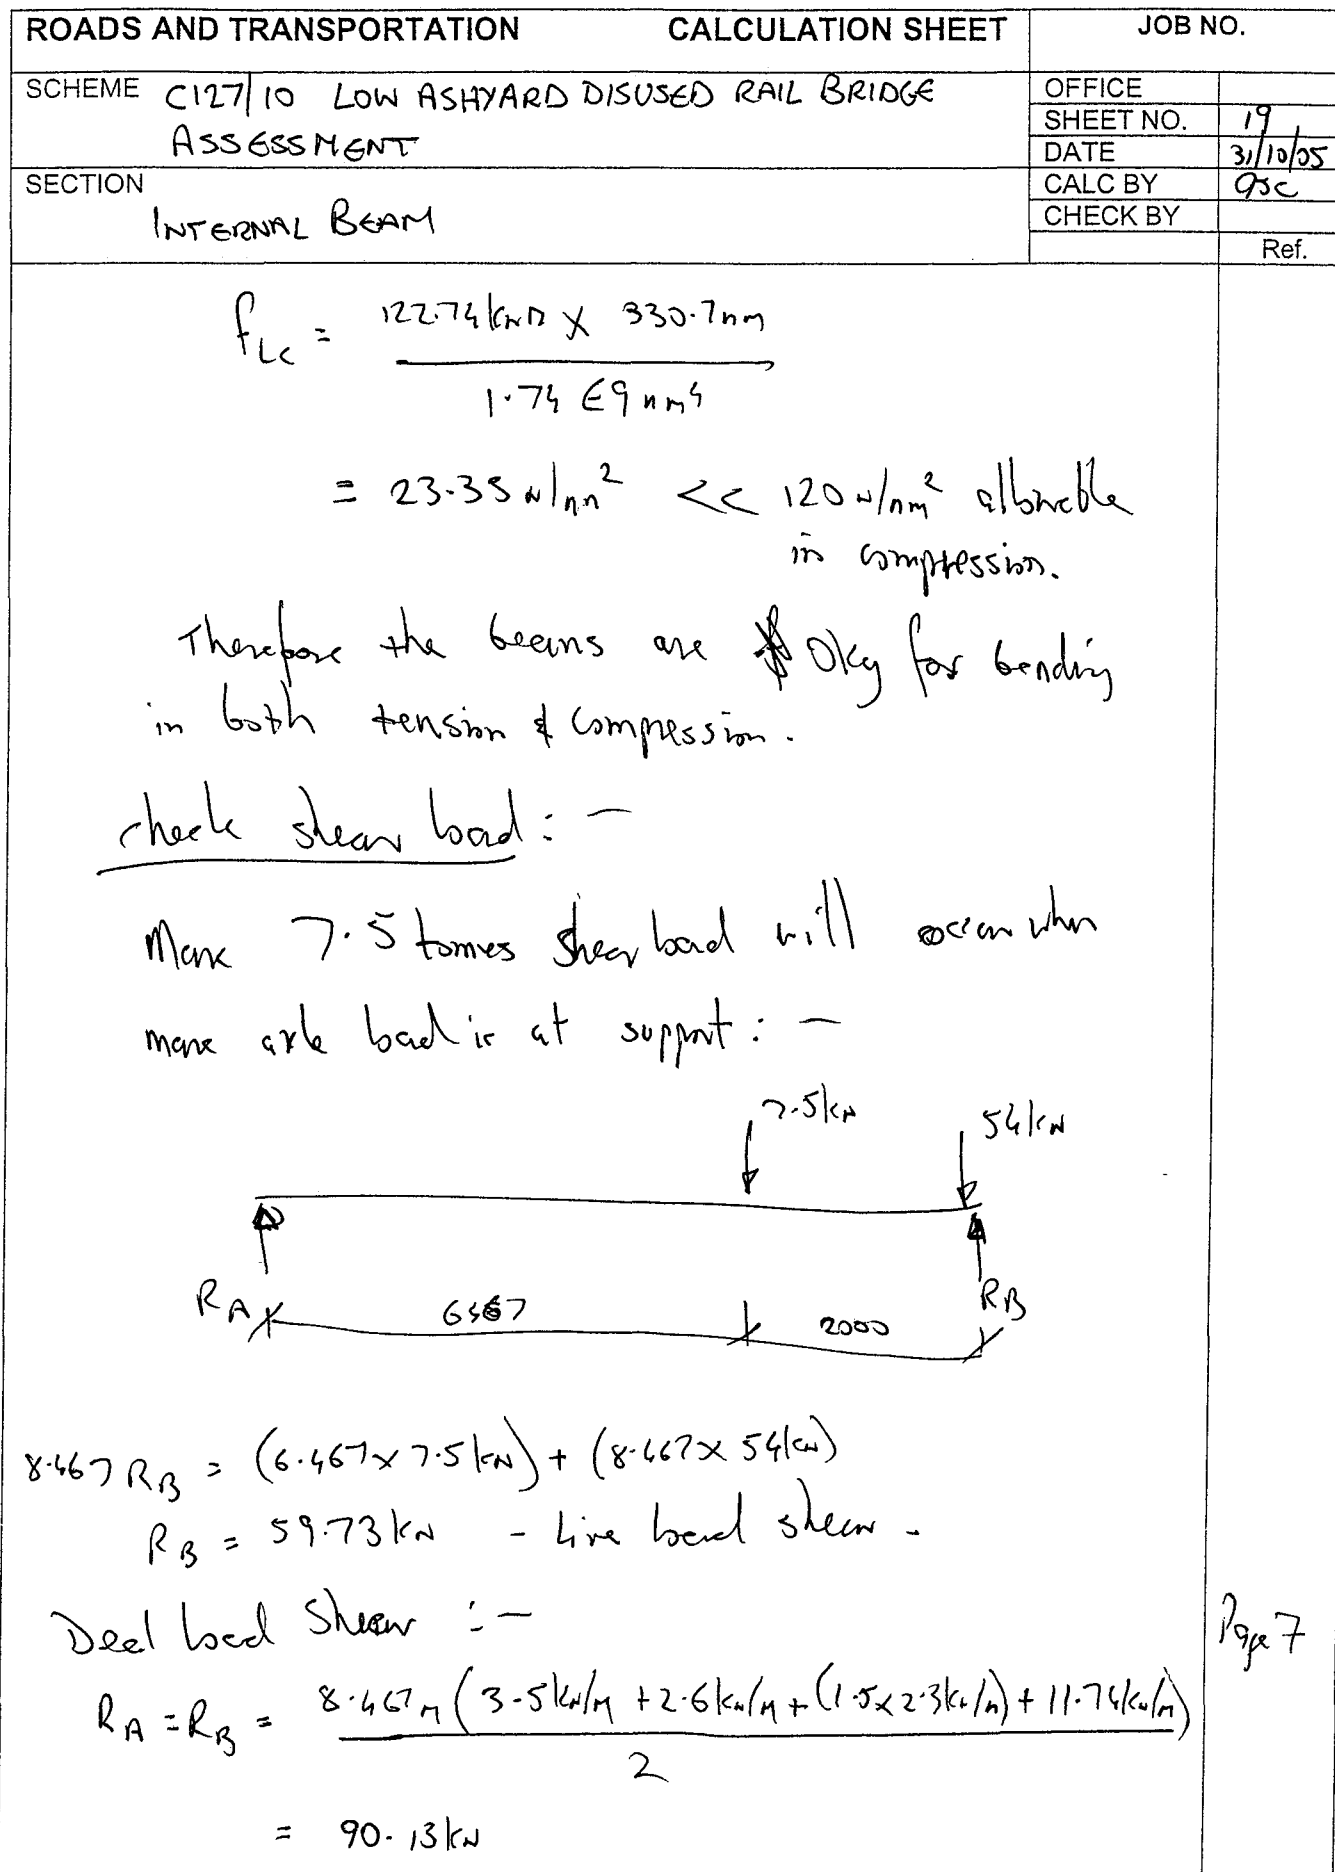 ROADS AND TRANSPORTATION CALCULATION SHEET JOB NO.
SCHEME C127/10 LOW ASHYARD DISUSED RAIL BRIDGE
ASSESSMENT
OFFICE
SHEET NO. 19
DATE 31/10/05
SECTION
INTERNAL BEAM
CALC BY GJC
CHECK BY
Ref.
fLc = 122.74kNm x 330.7mm
1.74 E9 mm4
= 23.35 N/mm² << 120 N/mm² allowable
in compression.
Therefore the beams are Okay for bending
in both tension & compression.
check shear load :-
Max 7.5 tonnes shear load will occur when
max axle load is at support :-
7.5kN 54kN
RA 6467 2000 RB
8.467 RB = (6.467 x 7.5kN) + (8.467 x 54kN)
RB = 59.73kN - live load shear.
Dead load Shear :- Page 7
RA = RB = 8.467m (3.5kN/m + 2.6kN/m + (1.5x2.3kN/m) + 11.74kN/m)
2
= 90.13kN